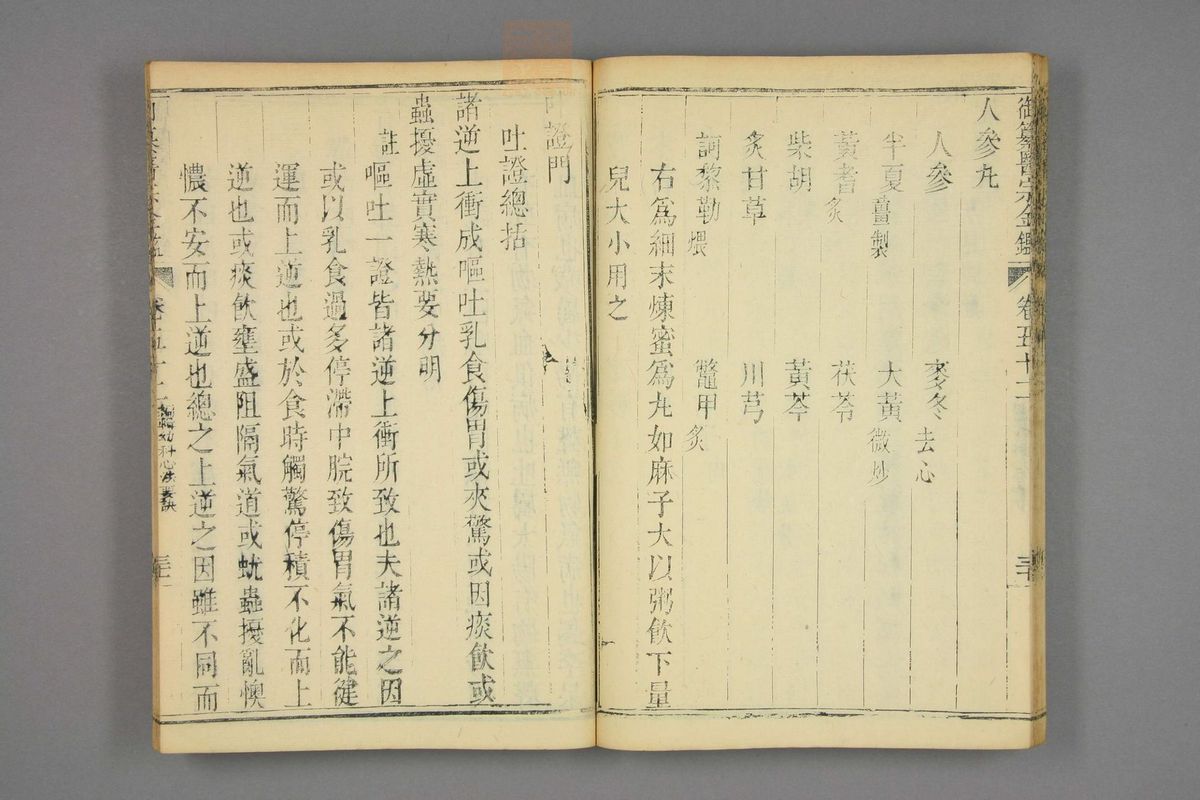 御纂醫宗金鑑 卷五十二
人參丸
人參 麥冬去心
半夏薑製 大黃微炒
黃耆炙 茯苓
柴胡 黃芩
炙甘草 川芎
訶黎勒煨 鼈甲炙
右為細末煉蜜為丸如麻子大以粥飲下量
兒大小用之
吐證門
吐證總括
諸逆上衝成嘔吐乳食傷胃或夾驚或因痰飲或
蟲擾虛實寒熱要分明
註嘔吐一證皆諸逆上衝所致也夫諸逆之因
或以乳食過多停滯中脘致傷胃氣不能健
運而上逆也或於食時觸驚停積不化而上
逆也或痰飲壅盛阻隔氣道或蚘蟲擾亂懊
憹不安而上逆也總之上逆之因雖不同而
卷五十二 編輯幼科心法要訣